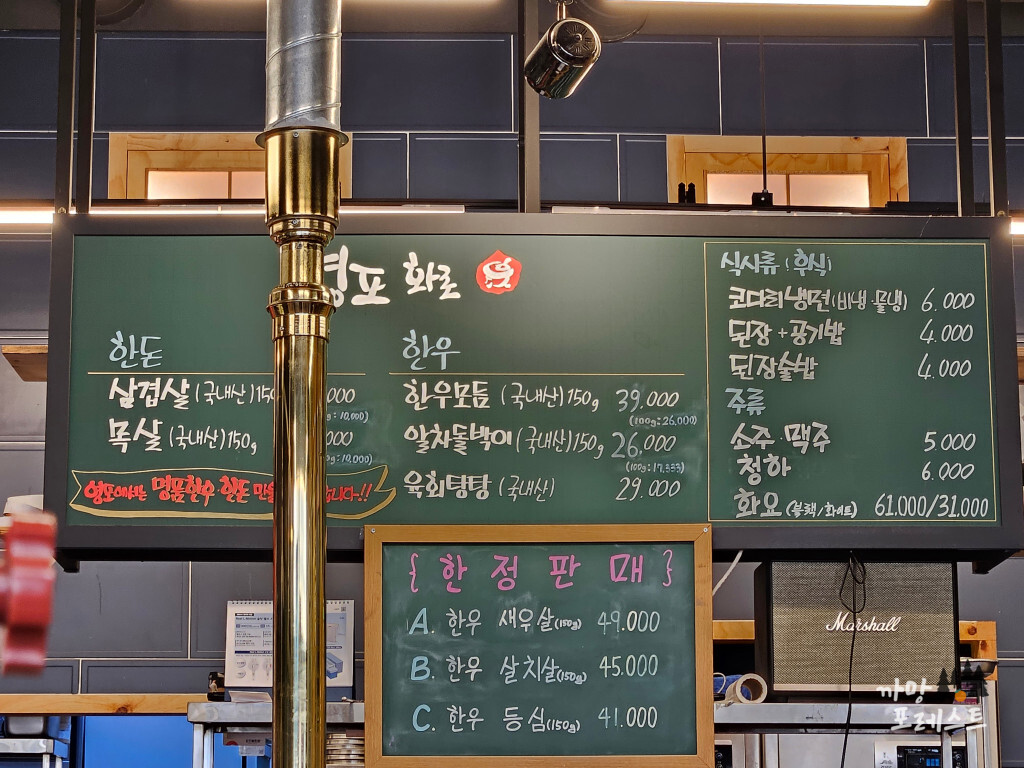 영포 화로
한돈
삼겹살 (국내산) 150 000
(100g: 10,000)
목살 (국내산) 150g 000
(100g: 10,000)
영포에서는 명품한우·한돈 만을 니다.!!
한우
한우모듬 (국내산) 150g 39.000
(100g: 26,000)
알차돌박이 (국내산) 150g 26.000
(100g: 17,333)
육회탕탕 (국내산) 29.000
식사류 (후식)
코다리냉면 (비냉 물냉) 6.000
된장+공기밥 4.000
된장술밥 4.000
주류
소주·맥주 5.000
청하 6.000
화요 (블랙/화이트) 61.000/31.000
{한정판매}
A. 한우 새우살 (150g) 49.000
B. 한우 살치살 (150g) 45.000
C. 한우 등심 (150g) 41.000
Marshall
까망
포레스트